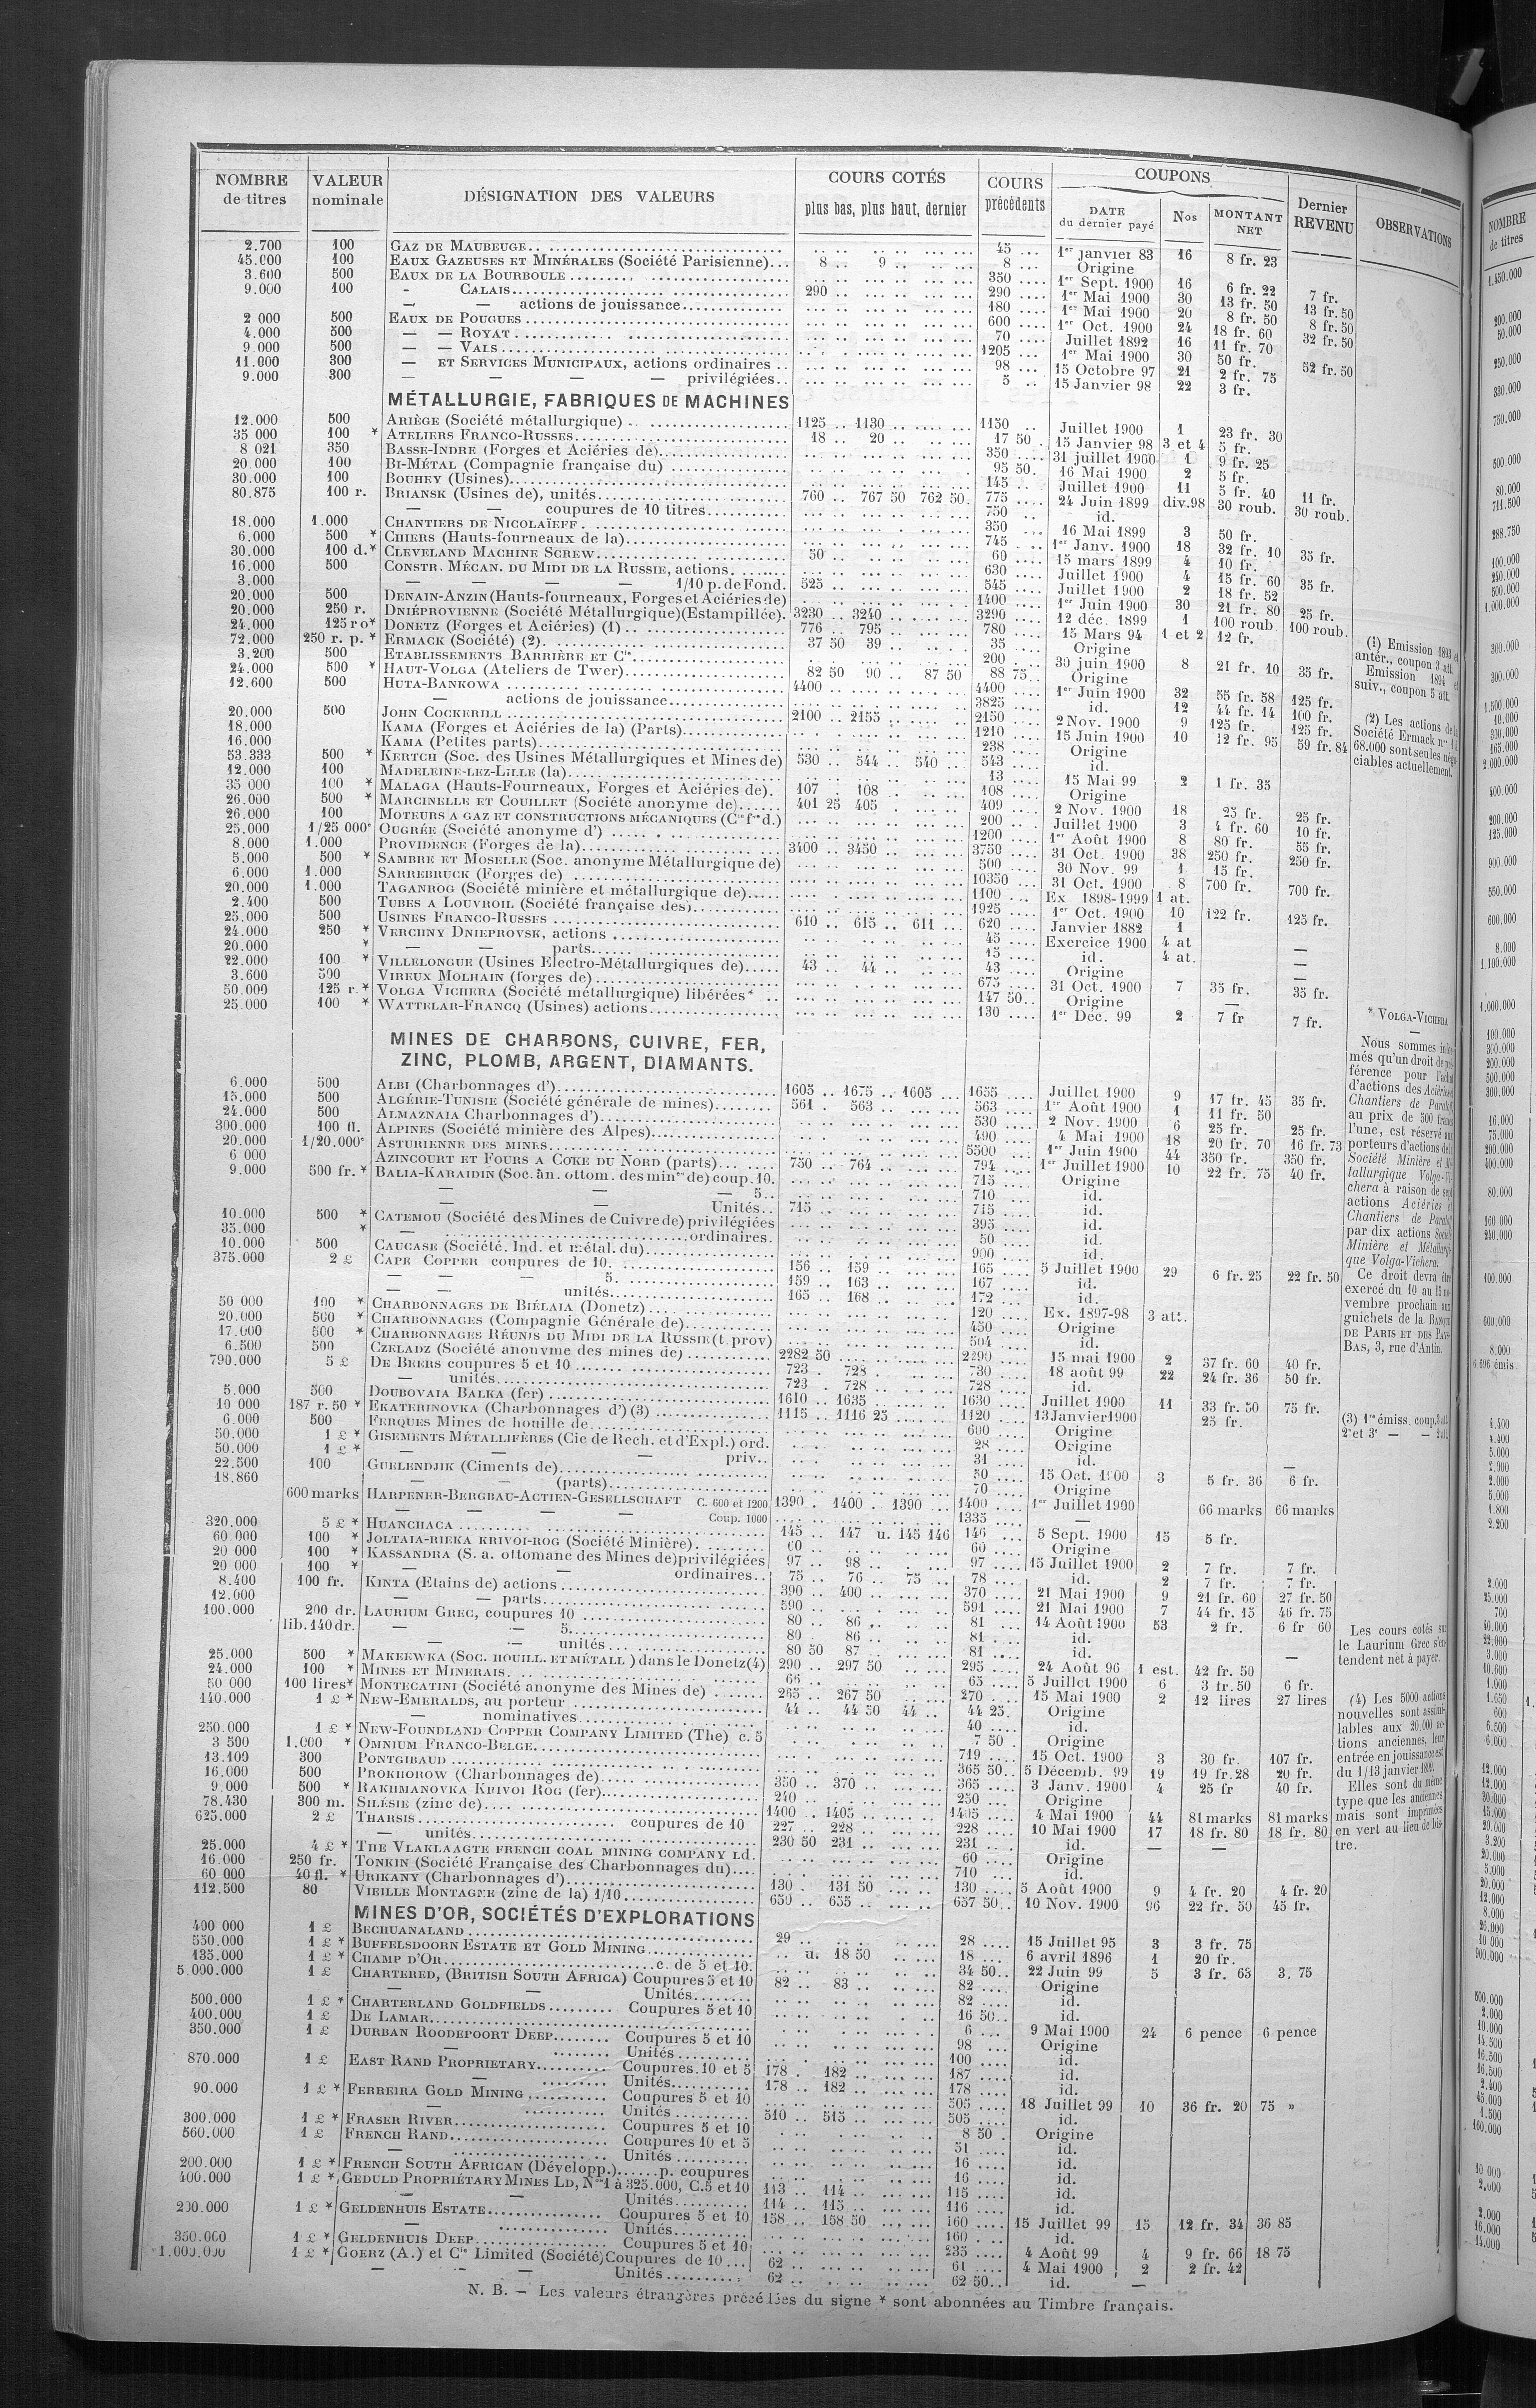 NOMBRE de titres | VALEUR nominale | DÉSIGNATION DES VALEURS | COURS COTÉS plus bas, plus haut, dernier | COURS précédents | COUPONS DATE du dernier payé | Nos | MONTANT NET | Dernier REVENU | OBSERVATIONS
2.700 100 GAZ DE MAUBEUGE 45 1er janvier 83 16 8 fr. 23
45.000 100 EAUX GAZEUSES ET MINÉRALES (Société Parisienne) 8 9 8 Origine
3.600 500 EAUX DE LA BOURBOULE 350 1er Sept. 1900 16 6 fr. 22 7 fr.
9.000 100 - CALAIS 290 290 1er Mai 1900 30 13 fr. 50 13 fr. 50
— — actions de jouissance 180 1er Mai 1900 20 8 fr. 50 8 fr. 50
2 000 500 EAUX DE POUGUES 600 1er Oct. 1900 24 18 fr. 60 32 fr. 50
4.000 500 — — ROYAT 70 Juillet 1892 16 11 fr. 70
9.000 500 — — VALS 1205 1er Mai 1900 30 50 fr. 52 fr. 50
11.000 300 — ET SERVICES MUNICIPAUX, actions ordinaires 98 15 Octobre 97 21 2 fr. 75
9.000 300 — — — — privilégiées 5 15 Janvier 98 22 3 fr.
MÉTALLURGIE, FABRIQUES DE MACHINES
12.000 500 ARIÈGE (Société métallurgique) 1125 1130 1150 Juillet 1900 1 23 fr. 30
35 000 100 * ATELIERS FRANCO-RUSSES 18 20 17 50 15 Janvier 98 3 et 4 5 fr.
8 021 350 BASSE-INDRE (Forges et Aciéries de) 350 31 juillet 1900 1 9 fr. 25
20.000 100 BI-MÉTAL (Compagnie française du) 95 50 16 Mai 1900 2 5 fr.
30.000 100 BOUHEY (Usines) 145 Juillet 1900 11 5 fr. 40 11 fr.
80.875 100 r. BRIANSK (Usines de), unités 760 767 50 762 50 775 24 Juin 1899 div.98 30 roub. 30 roub.
— — coupures de 10 titres 750 id.
18.000 1.000 CHANTIERS DE NICOLAÏEFF 350 16 Mai 1899 3 50 fr.
6.000 500 * CHIERS (Hauts-fourneaux de la) 745 1er Janv. 1900 18 32 fr. 10 35 fr.
30.000 100 d.* CLEVELAND MACHINE SCREW 50 60 15 mars 1899 4 10 fr.
16.000 500 CONSTR. MÉCAN. DU MIDI DE LA RUSSIE, actions 630 Juillet 1900 4 15 fr. 60 35 fr.
3.000 — — — — 1/10 p. de Fond. 525 545 Juillet 1900 2 18 fr. 52
20.000 500 DENAIN-ANZIN (Hauts-fourneaux, Forges et Aciéries de) 1400 1er Juin 1900 30 21 fr. 80 25 fr.
20.000 250 r. DNIÉPROVIENNE (Société Métallurgique)(Estampillée) 3230 3240 3290 12 déc. 1899 1 100 roub 100 roub.
24.000 125 ro* DONETZ (Forges et Aciéries) (1) 776 795 780 15 Mars 94 1 et 2 12 fr.
72.000 250 r. p. * ERMACK (Société) (2) 37 50 39 35 Origine
3.200 500 ETABLISSEMENTS BARRIÈRE ET Cie 200 30 juin 1900 8 21 fr. 10 35 fr.
24.000 500 * HAUT-VOLGA (Ateliers de Twer) 82 50 90 87 50 88 75 Origine
12.600 500 HUTA-BANKOWA 4400 4400 1er Juin 1900 32 55 fr. 58 125 fr.
actions de jouissance 3825 id. 12 44 fr. 14 100 fr.
20.000 500 JOHN COCKERILL 2100 2155 2150 2 Nov. 1900 9 125 fr. 125 fr.
18.000 KAMA (Forges et Aciéries de la) (Parts) 1210 15 Juin 1900 10 12 fr. 95 59 fr. 84
16.000 KAMA (Petites parts) 238 Origine
53.333 500 * KERTCH (Soc. des Usines Métallurgiques et Mines de) 530 544 540 543 id.
12.000 100 MADELEINE-LEZ-LILLE (la) 13 15 Mai 99 2 1 fr. 35
35 000 100 * MALAGA (Hauts-Fourneaux, Forges et Aciéries de) 107 108 108 Origine
26.000 500 * MARCINELLE ET COUILLET (Société anonyme de) 401 25 405 409 2 Nov. 1900 18 25 fr. 25 fr.
26.000 100 MOTEURS A GAZ ET CONSTRUCTIONS MÉCANIQUES (Cie fse d.) 200 Juillet 1900 3 4 fr. 60 10 fr.
25.000 1/25 000* OUGRÉE (Société anonyme d') 1200 1er Août 1900 8 80 fr. 55 fr.
8.000 1.000 PROVIDENCE (Forges de la) 3400 3450 3750 31 Oct. 1900 38 250 fr. 250 fr.
5.000 500 * SAMBRE ET MOSELLE (Soc. anonyme Métallurgique de) 500 30 Nov. 99 1 15 fr.
6.000 1.000 SARREBRUCK (Forges de) 10350 31 Oct. 1900 8 700 fr. 700 fr.
20.000 1.000 TAGANROG (Société minière et métallurgique de) 1100 Ex 1898-1999 1 at.
2.400 500 TUBES A LOUVROIL (Société française des) 1925 1er Oct. 1900 10 122 fr. 125 fr.
25.000 500 USINES FRANCO-RUSSES 610 615 611 620 Janvier 1882 1
24.000 250 * VERCHNY DNIEPROVSK, actions 45 Exercice 1900 4 at —
20.000 * — — parts 15 id. 4 at. —
22.000 100 * VILLELONGUE (Usines Electro-Métallurgiques de) 43 44 43 Origine —
3.600 500 VIREUX MOLHAIN (forges de) 675 31 Oct. 1900 7 35 fr. 35 fr.
50.000 125 r.* VOLGA VICHERA (Société métallurgique) libérées* 147 50 Origine —
25.000 100 * WATTELAR-FRANCQ (Usines) actions 130 1er Dec. 99 2 7 fr 7 fr.
(1) Emission 1893 et antér., coupon 3 att.
Emission 1894 et suiv., coupon 5 att.
(2) Les actions de la Société Ermack nos 1 à 68.000 sont seules négociables actuellement.
MINES DE CHARBONS, CUIVRE, FER,
ZINC, PLOMB, ARGENT, DIAMANTS.
6.000 500 ALBI (Charbonnages d') 1605 1675 1605 1655 Juillet 1900 9 17 fr. 45 35 fr.
15.000 500 ALGÉRIE-TUNISIE (Société générale de mines) 561 563 563 1er Août 1900 1 11 fr. 50
24.000 500 ALMAZNAIA Charbonnages d') 530 2 Nov. 1900 6 25 fr. 25 fr.
300.000 100 fl. ALPINES (Société minière des Alpes) 490 4 Mai 1900 18 20 fr. 70 16 fr. 73
20.000 1/20.000* ASTURIENNE DES MINES 5500 1er Juin 1900 44 350 fr. 350 fr.
6 000 AZINCOURT ET FOURS A COKE DU NORD (parts) 750 764 794 1er Juillet 1900 10 22 fr. 75 40 fr.
9.000 500 fr. * BALIA-KARAIDIN (Soc. an. ottom. des mines de) coup. 10. 715 Origine
— — — 5 710 id.
Unités 715 715 id.
10.000 500 * CATEMOU (Société des Mines de Cuivre de) privilégiées 395 id.
35.000 * — ordinaires 50 id.
10.000 500 CAUCASE (Société. Ind. et métal. du) 900 id.
375.000 2 £ CAPE COPPER coupures de 10. 156 159 165 5 Juillet 1900 29 6 fr. 25 22 fr. 50
— — — 5. 159 163 167 id.
— — unités 165 168 172 id.
50 000 100 * CHARBONNAGES DE BIÉLAIA (Donetz) 120 Ex. 1897-98 3 att.
20.000 500 * CHARBONNAGES (Compagnie Générale de) 450 Origine
17.000 500 * CHARBONNAGES RÉUNIS DU MIDI DE LA RUSSIE (t. prov) 504 id.
6.500 500 CZELADZ (Société anonyme des mines de) 2282 50 2290 15 mai 1900 2 37 fr. 60 40 fr.
790.000 5 £ DE BEERS coupures 5 et 10 723 728 730 18 août 99 22 24 fr. 36 50 fr.
— unités 723 728 728 id.
5.000 500 DOUBOVAIA BALKA (fer) 1610 1635 1630 Juillet 1900 11 33 fr. 50 75 fr.
10 000 187 r. 50 * EKATERINOVKA (Charbonnages d') (3) 1115 1116 25 1120 13 Janvier 1900 25 fr.
6.000 500 FERQUES Mines de houille de 600 Origine
50.000 1 £ * GISEMENTS MÉTALLIFÈRES (Cie de Rech. et d'Expl.) ord. 28 Origine
50.000 1 £ * — — — priv. 31 id. —
22.500 100 GUELENDJIK (Ciments de) 50 15 Oct. 1900 3 5 fr. 36 6 fr.
18.860 — — (parts) 70 Origine
600 marks HARPENER-BERGBAU-ACTIEN-GESELLSCHAFT C. 600 et 1200 1390 1400 1390 1400 1er Juillet 1900 66 marks 66 marks
— — — Coup. 1000 1335 —
320.000 5 £ * HUANCHACA 145 147 u. 145 146 146 5 Sept. 1900 15 5 fr.
60 000 100 * JOLTAIA-RIEKA KRIVOI-ROG (Société Minière) 60 60 Origine
20 000 100 * KASSANDRA (S. a. ottomane des Mines de) privilégiées 97 98 97 15 Juillet 1900 2 7 fr. 7 fr.
20 000 100 * — — ordinaires 75 76 75 78 id. 2 7 fr. 7 fr.
8.400 100 fr. KINTA (Etains de) actions 390 400 370 21 Mai 1900 9 21 fr. 60 27 fr. 50
12.000 — — parts 590 591 21 Mai 1900 7 44 fr. 15 46 fr. 75
100.000 200 dr. LAURIUM GREC, coupures 10 80 86 81 14 Août 1900 53 2 fr. 6 fr 60
lib. 140 dr. — — 5 80 86 81 id.
— — unités 80 50 87 81 id. —
25.000 500 * MAKEEWKA (SOC. HOUILL. ET MÉTALL) dans le Donetz (4) 290 297 50 295 24 Août 96 1 est. 42 fr. 50
24.000 100 * MINES ET MINERAIS 66 65 5 Juillet 1900 6 3 fr. 50 6 fr.
50 000 100 lires* MONTECATINI (Société anonyme des Mines de) 265 267 50 270 15 Mai 1900 2 12 lires 27 lires
140.000 1 £ * NEW-EMERALDS, au porteur 44 44 50 44 44 25 Origine
— nominatives 40 id.
250.000 1 £ * NEW-FOUNDLAND COPPER COMPANY LIMITED (The) c. 5 7 50 Origine
3 500 1.000 * OMNIUM FRANCO-BELGE 719 15 Oct. 1900 3 30 fr. 107 fr.
13.109 300 PONTGIBAUD 365 50 5 Décemb. 99 19 19 fr. 28 20 fr.
16.000 500 PROKHOROW (Charbonnages de) 350 370 365 3 Janv. 1900 4 25 fr 40 fr.
9.000 500 * RAKHMANOVKA KRIVOI ROG (fer) 240 250 Origine
78.430 300 m. SILÉSIE (zinc de) 1400 1405 1405 4 Mai 1900 44 81 marks 81 marks
625.000 2 £ THARSIS coupures de 10 227 228 228 10 Mai 1900 17 18 fr. 80 18 fr. 80
— unités 230 50 231 231 id. — —
25.000 4 £ * THE VLAKLAAGTE FRENCH COAL MINING COMPANY LD. 60 Origine
16.000 250 fr. TONKIN (Société Française des Charbonnages du) 710 id.
60 000 40 fl. * URIKANY (Charbonnages d') 130 131 50 130 5 Août 1900 9 4 fr. 20 4 fr. 20
112.500 80 VIEILLE MONTAGNE (zinc de la) 1/10 650 655 657 50 10 Nov. 1900 96 22 fr. 50 45 fr.
* VOLGA-VICHERA
—
Nous sommes informés qu'un droit de préférence pour l'achat d'actions des Aciéries et Chantiers de Paratoff au prix de 500 francs l'une, est réservé aux porteurs d'actions de la Société Minière et Métallurgique Volga-Vichera à raison de sept actions Aciéries et Chantiers de Paratoff par dix actions Société Minière et Métallurgique Volga-Vichera.
Ce droit devra être exercé du 10 au 15 novembre prochain aux guichets de la BANQUE DE PARIS ET DES PAYS-BAS, 3, rue d'Antin.
(3) 1re émiss. coup. 3 att.
2e et 3e — — 2 att.
Les cours cotés sur le Laurium Grec s'entendent net à payer.
(4) Les 5000 actions nouvelles sont assimilables aux 20.000 actions anciennes, leur entrée en jouissance est du 1/13 janvier 1899.
Elles sont du même type que les anciennes, mais sont imprimées en vert au lieu de bistre.
MINES D'OR, SOCIÉTÉS D'EXPLORATIONS
400 000 1 £ BECHUANALAND 29 28 15 Juillet 95 3 3 fr. 75
550.000 1 £ * BUFFELSDOORN ESTATE ET GOLD MINING u. 18 50 18 6 avril 1896 1 20 fr.
135.000 1 £ * CHAMP D'OR c. de 5 et 10. 34 50 22 Juin 99 5 3 fr. 65 3. 75
5.000.000 1 £ CHARTERED, (BRITISH SOUTH AFRICA) Coupures 5 et 10 82 83 82 Origine
— — Unités 82 id.
500.000 1 £ * CHARTERLAND GOLDFIELDS Coupures 5 et 10 16 50 id.
400.000 1 £ DE LAMAR 6 9 Mai 1900 24 6 pence 6 pence
350.000 1 £ DURBAN ROODEPOORT DEEP Coupures 5 et 10 98 Origine
— Unités 100 id.
870.000 1 £ EAST RAND PROPRIETARY Coupures 10 et 5 178 182 187 id.
— Unités 178 182 178 id.
90.000 1 £ * FERREIRA GOLD MINING Coupures 5 et 10 505 18 Juillet 99 10 36 fr. 20 75 »
— Unités 510 515 505 id.
300.000 1 £ * FRASER RIVER Coupures 5 et 10 8 50 Origine
560.000 1 £ FRENCH RAND Coupures 10 et 5 51 id.
— Unités 16 id.
200.000 1 £ * FRENCH SOUTH AFRICAN (Développ.) p. coupures 16 id.
400.000 1 £ * GEDULD PROPRIÉTARY MINES LD, Nos 1 à 325.000, C. 5 et 10 113 114 115 id.
— — Unités 114 115 116 id.
200.000 1 £ * GELDENHUIS ESTATE Coupures 5 et 10 158 158 50 160 15 Juillet 99 15 12 fr. 34 36 85
— Unités 160 id.
350.000 1 £ * GELDENHUIS DEEP Coupures 5 et 10 235 4 Août 99 4 9 fr. 66 18 75
1.000.000 1 £ * GOERZ (A.) et Cie Limited (Société) Coupures de 10 62 61 4 Mai 1900 2 2 fr. 42
— — — Unités 62 62 50 id. —
N. B. — Les valeurs étrangères précédées du signe * sont abonnées au Timbre français.